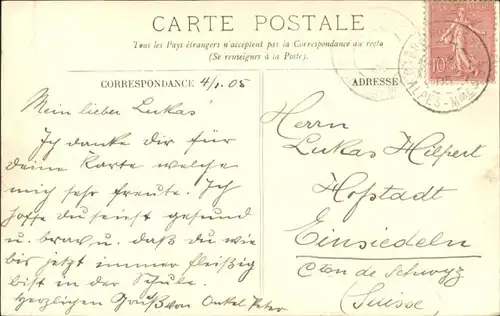 CARTE POSTALE
Tous les Pays étrangers n'acceptent pas la Correspondance au recto
(Se renseigner à la Poste).
CORRESPONDANCE 4/1.05
Mein lieber Lukas!
Ich danke dir für
deine Karte welche
mich sehr freute. Ich
hoffe du seiest gesund
u. brav u. daß du wie
bis jetzt immer fleißig
bist in der Schule.
Herzlichen Gruß von Onkel Peter
ADRESSE
Herrn
Lukas Hilpert
Hofstadt
Einsiedeln
Cton de Schwyz
(Suisse)
10
ALPES-MMES